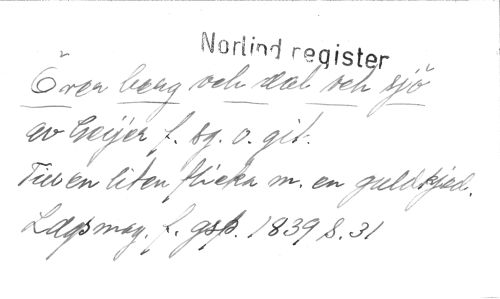 Norlind register
Över berg och dal och sjö
av Geijer f. sg. o. git.
Till en liten flicka m. en guldkjed.
Ldgsmag. f. gsp. 1839 s. 31